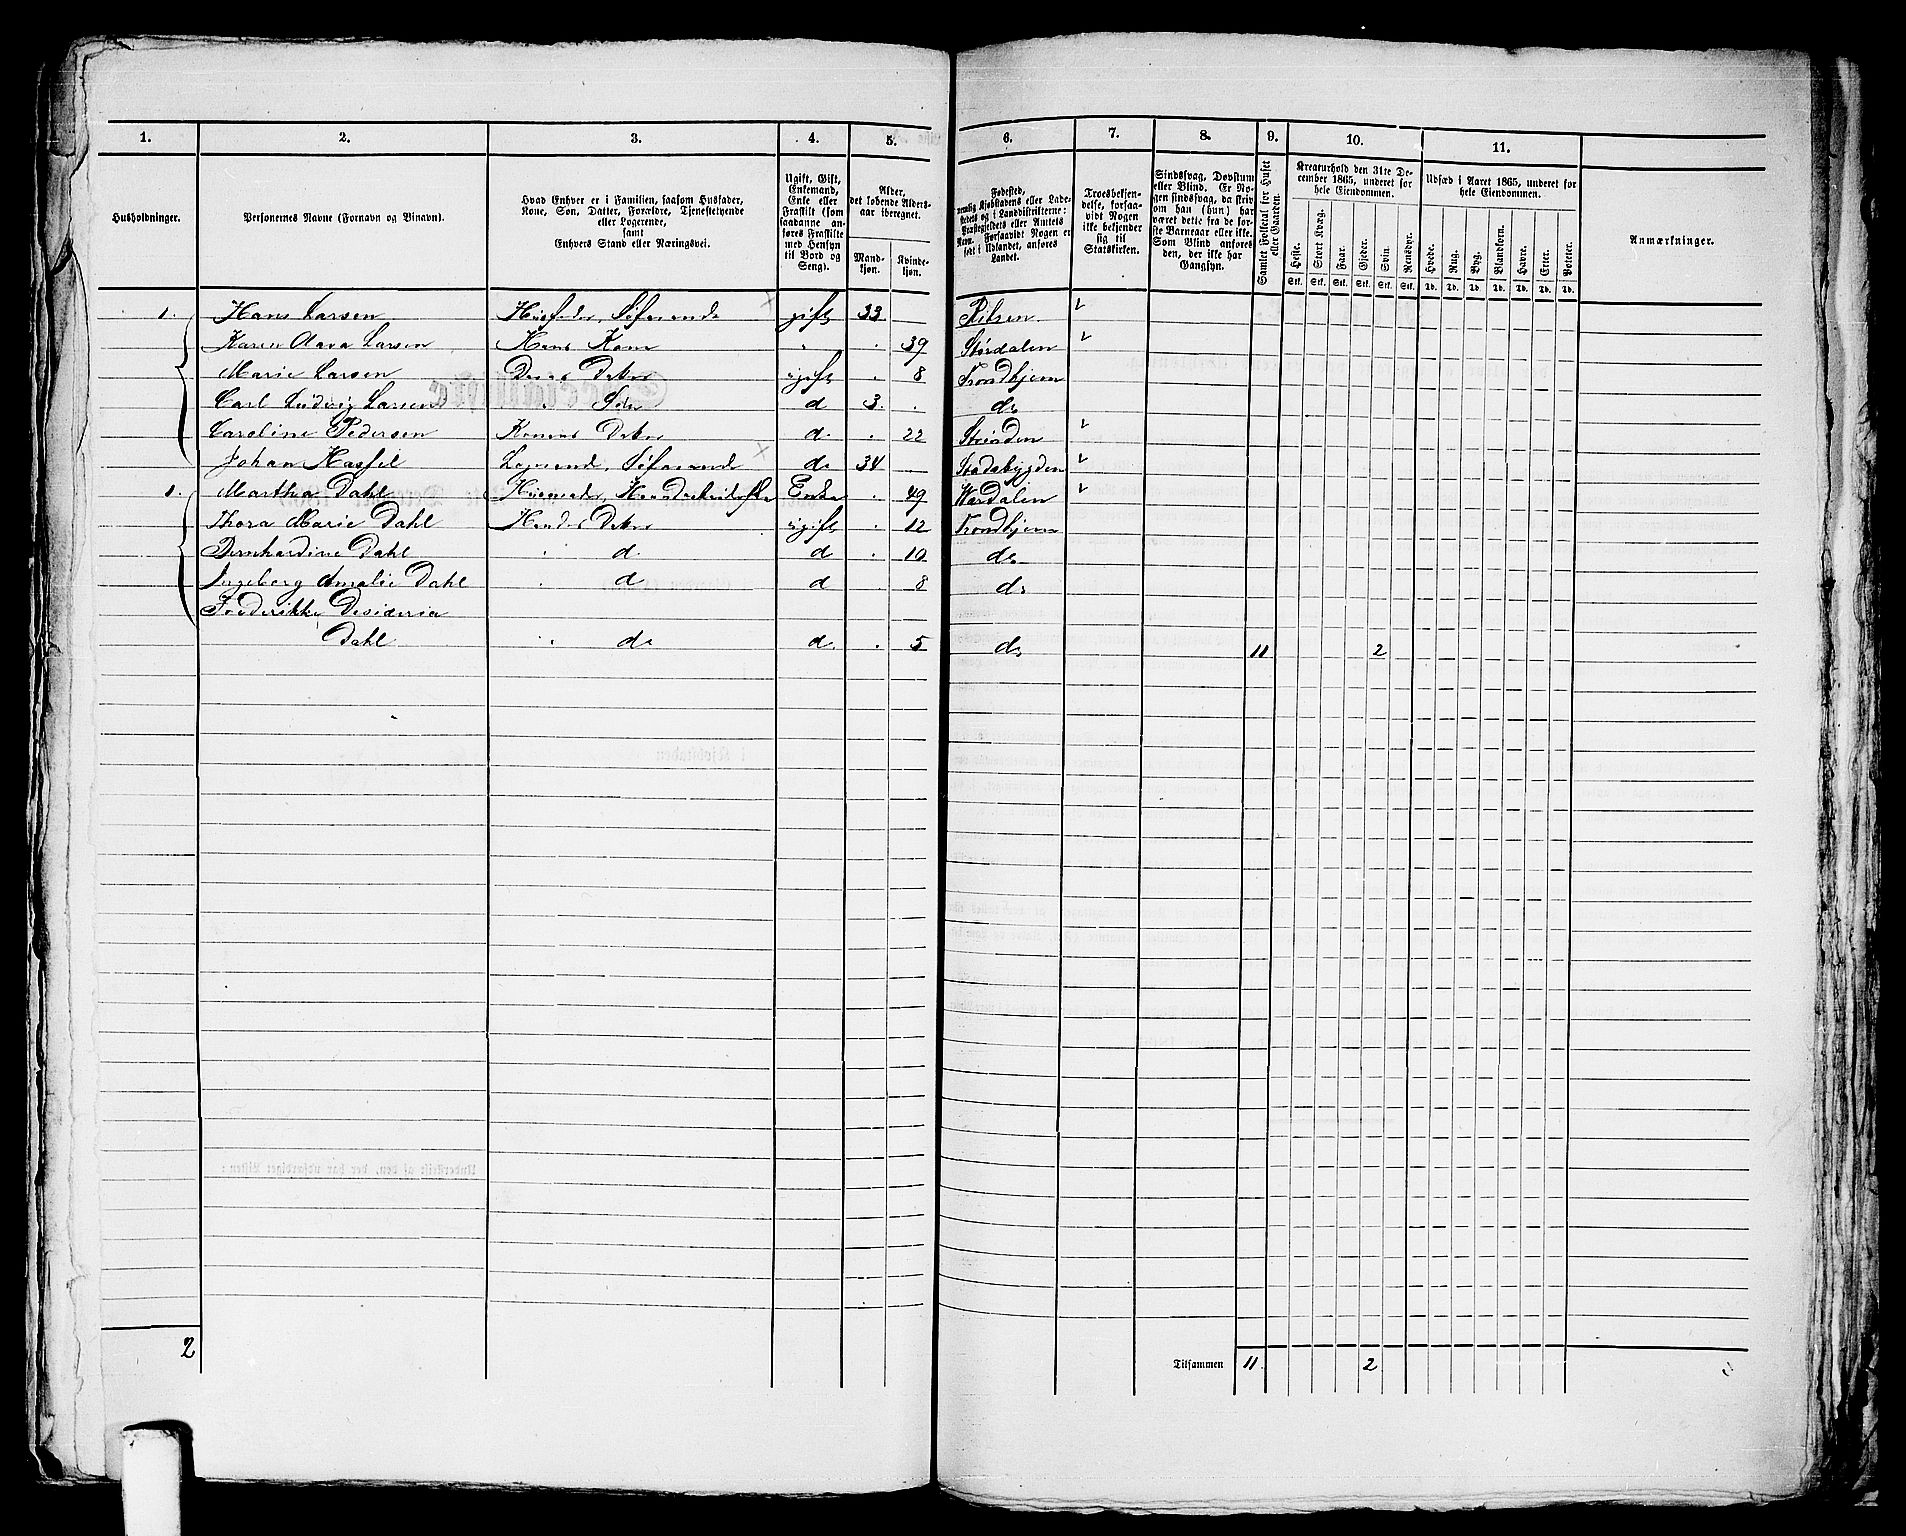 1. 2. 3. 4. 5. 6. 7. 8. 9. 10. 11.
Husholdninger.
Personernes Navne (Fornavn og Tilnavn).
Hvad Enhver er i Familien, saasom Husfader,
Kone, Søn, Datter, Forældre, Tjenestetyende
eller Logerende,
samt
Enhvers Stand eller Næringsvei.
Ugift, Gift,
Enkemand,
Enke eller
Fraskilt (som
saadanne an-
føres Fraskilte
med Hensyn
til Bord og
Seng).
Alder,
det løbende Alders-
aar iberegnet.
Mand-
kjøn.
Kvinde-
kjøn.
Fødested,
nemlig Kjøbstadens eller Lade-
stedets og i Landdistrikterne:
Præstegjeldets eller Amtets
Navn. Forsaavidt Nogen er
født i Udlandet, anføres
Landet.
Troesbekjen-
delse, forsaa-
vidt Nogen
ikke bekjender
sig til
Statskirken.
Sindssvag, Døvstum
eller Blind. Er No-
gen sindssvag, da skriv
om han (hun) har
været dette fra de før-
ste Barneaar eller ikke.
Som Blind anføres
den, der ikke har
Gangsyn.
Samlet Folketal for Huset
eller Gaarden.
Kreaturhold den 31te De-
cember 1865, underet for
hele Eiendommen.
Heste. Stort Kvæg. Faar. Gjeder. Svin. Rensdyr.
Stk. Stk. Stk. Stk. Stk. Stk.
Udsæd i Aaret 1865, underet for
hele Eiendommen.
Hvede. Rug. Byg. Blandkorn. Havre. Erter. Poteter.
Td. Td. Td. Td. Td. Td. Td.
Anmærkninger.
1. Hans Larsen Husfader, Søfarende gift 33 . Ritsen
Karen Larsen Hans Kone " . 39 Størdalen
Marie Larsen Deres Datter ugift . 8 Trondhjem
Carl Ludvig Larsen " Søn d 3. . do
Caroline Pedersen Konens Datter d. . 22 Strinden
Johan Hassel Logerende, Søfarende do 34 . Stadsbygden
1. Martha Dahl Enke . 49 Værdalen
Thora Marie Dahl Hendes Datter ugift . 12 Trondhjem
Bernhardine Dahl " d. d . 10 do
Ingeborg Amalie Dahl " d d . 8 do
Frederikke Desideria
Dahl " do d . 5 do 11 2
2
Tilsammen 11. 2